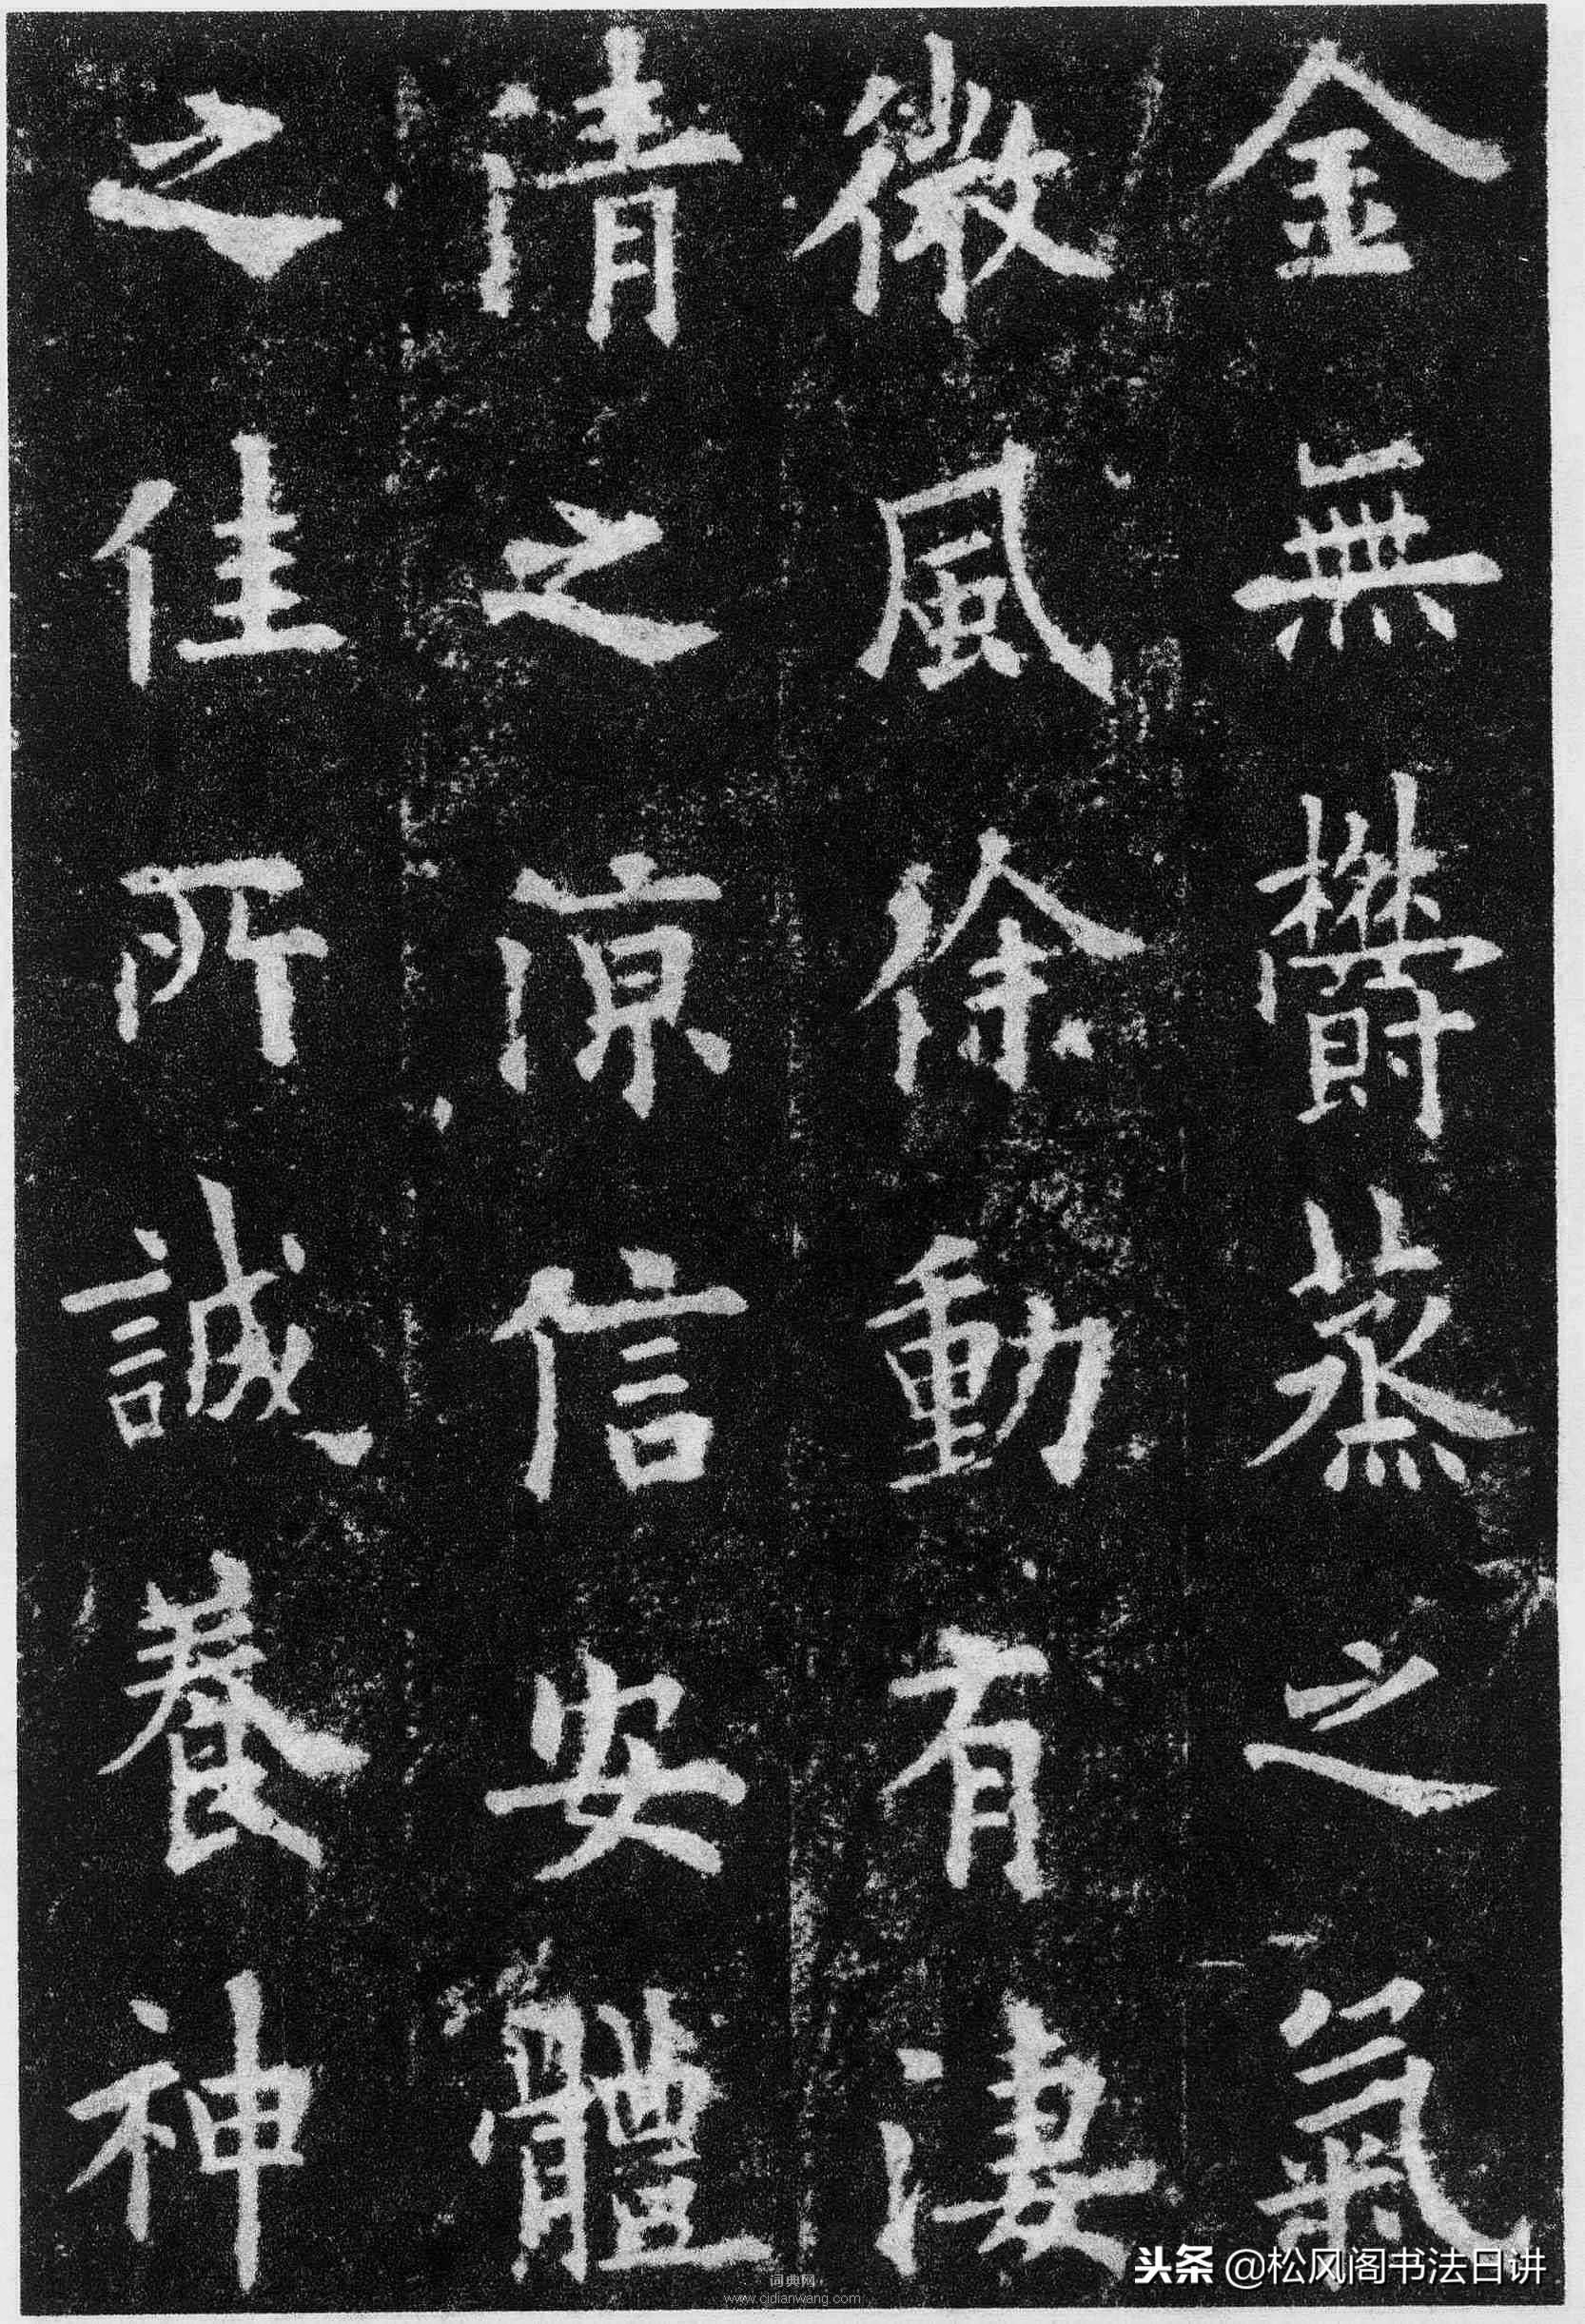 金無欝蒸之氣
微風徐動有淒
清之涼信安體
之佳所誠養神
头条 @松风阁书法日讲
词典网
www.cidianwang.com